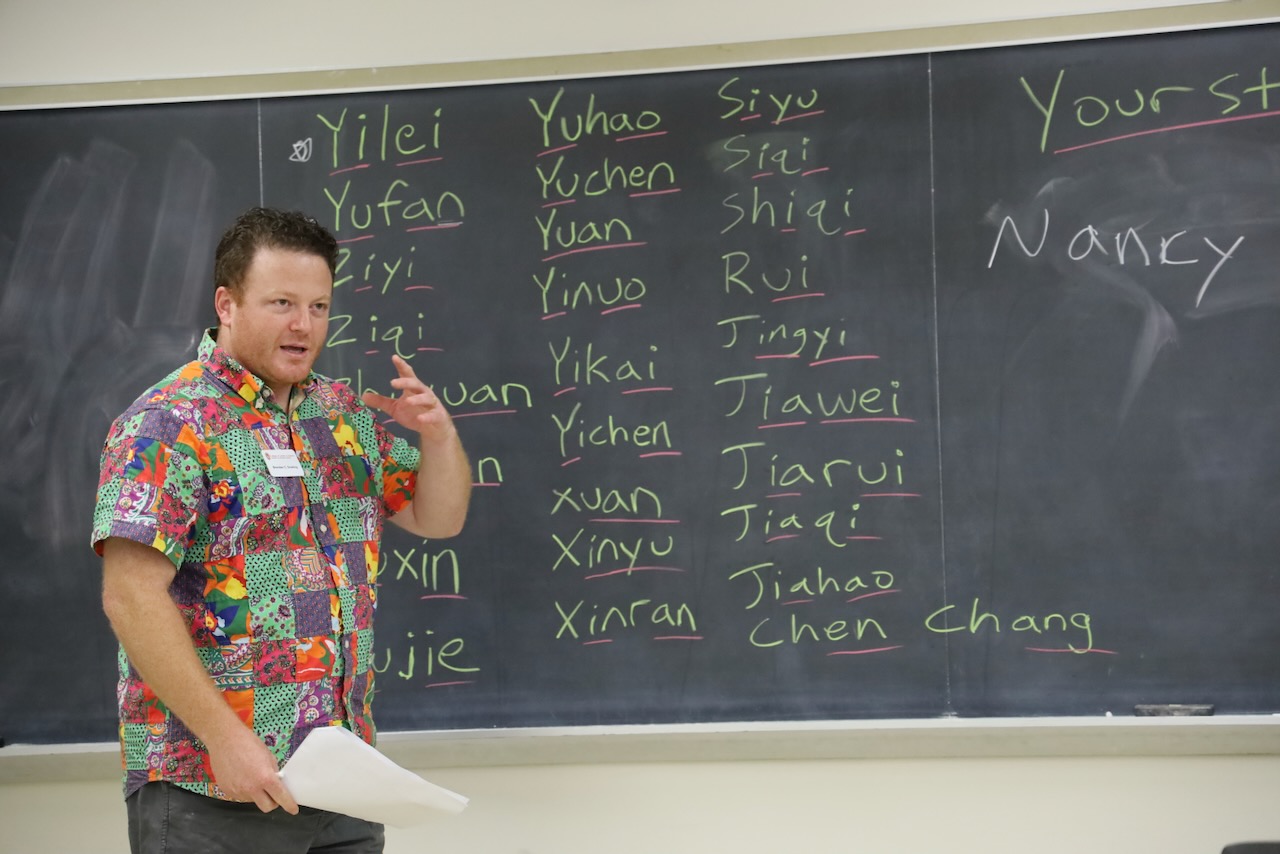 Yilei
Yufan
Ziyi
Ziqi
Yuhao
Yuchen
Yuan
Yinuo
Yikai
Yichen
xuan
Xinyu
Xinran
Siyu
Siqi
Shiqi
Rui
Jingyi
Jiawei
Jiarui
Jiaqi
Jiahao
Chen Chang
Your st
Nancy